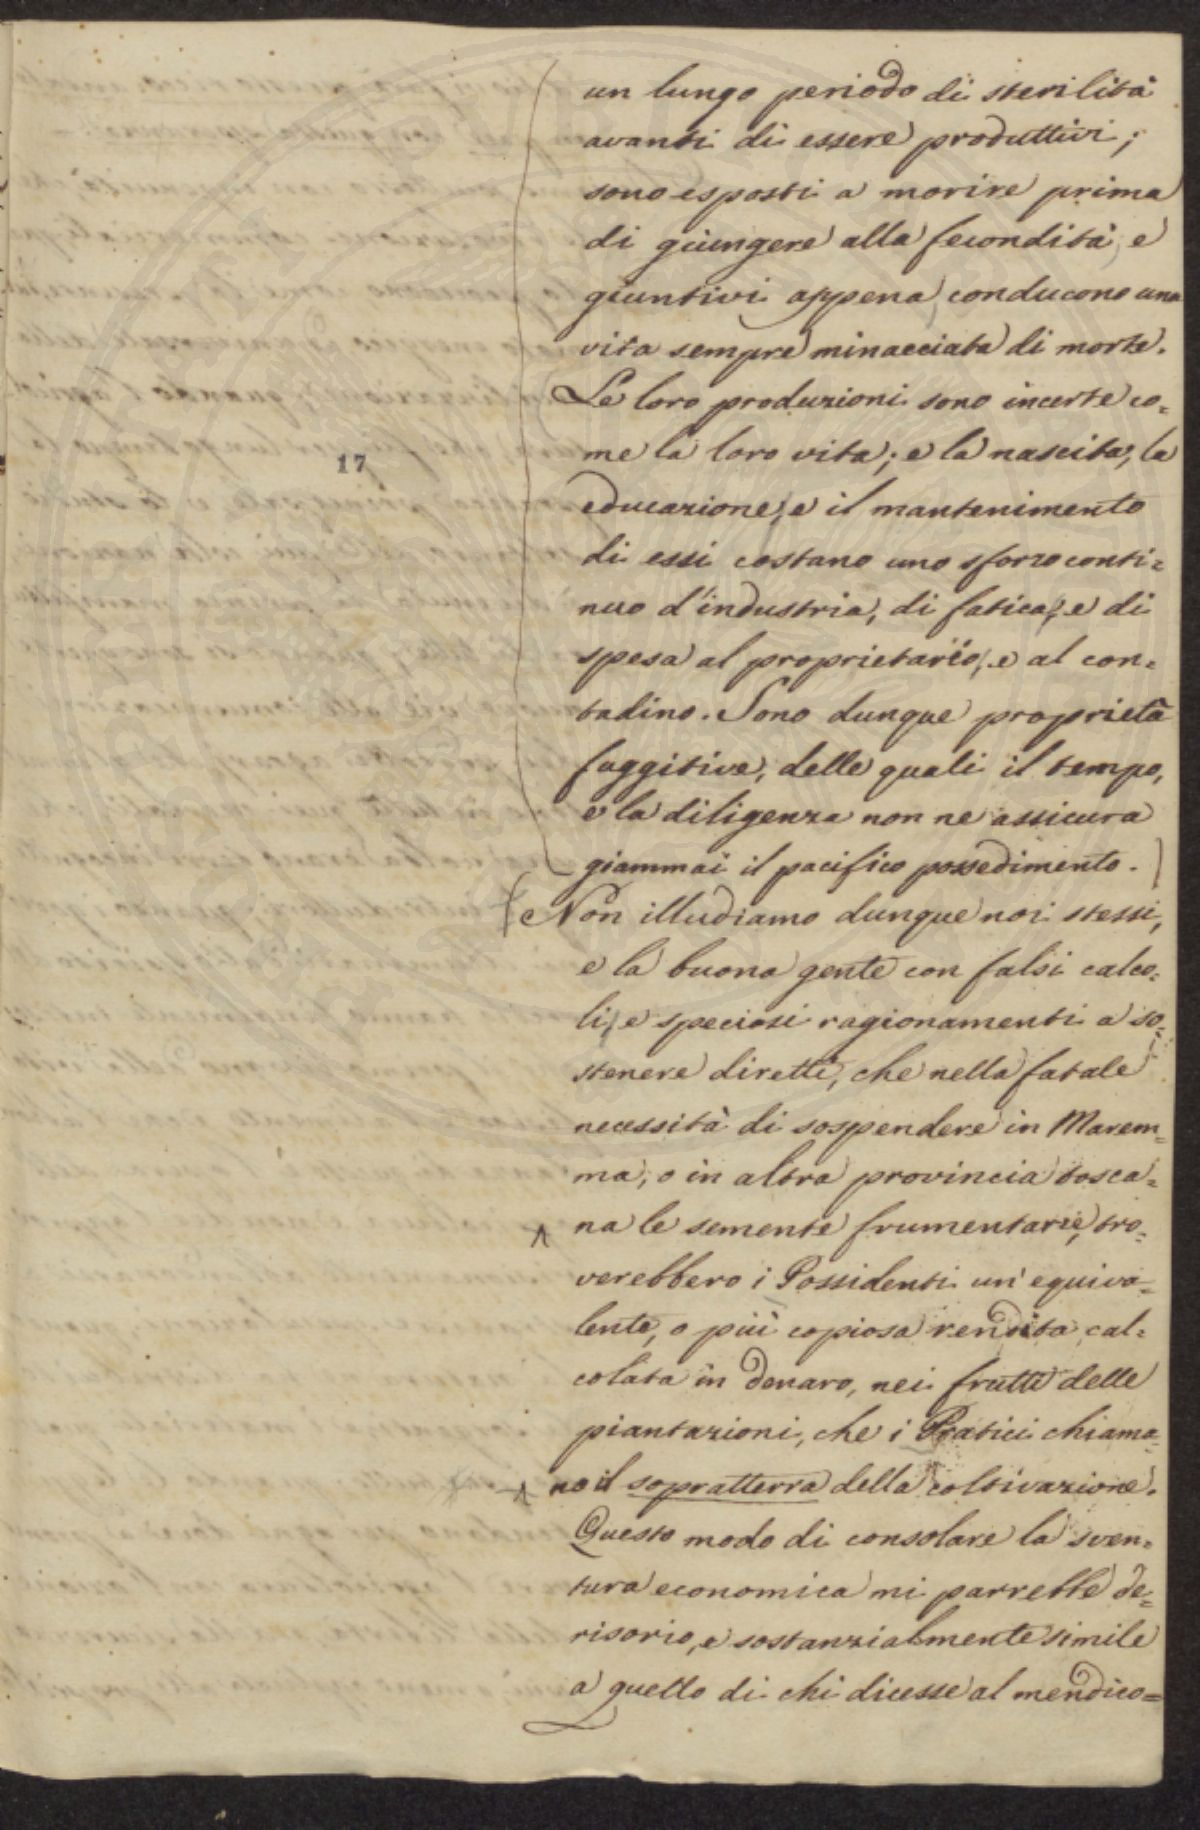 un lungo periodo di sterilità
avanti di essere produttivi;
sono esposti a morire prima
di giungere alla fecondità, e
giuntivi appena, conducono una
vita sempre minacciata di morte.
Le loro produzioni sono incerte co-
me la loro vita; e la nascita, la
17
educazione, e il mantenimento
di essi costano uno sforzo conti=
nuo d'industria, di fatica, e di
spesa al proprietario, e al con=
tadino. Sono dunque proprietà
fuggitive, delle quali il tempo,
e la diligenza non ne assicura
giammai il pacifico possedimento.]
[Non illudiamo dunque noi stessi,
e la buona gente con falsi calco=
li, e speciosi ragionamenti a so=
stenere diretti, che nella fatale
necessità di sospendere in Marem=
ma, o in altra provincia tosca=
na le semente frumentarie, tro=
verebbero i Possidenti un' equiva=
lente, o più copiosa rendita cal=
colata in denaro, nei frutti delle
piantazioni, che i Pratici chiama=
no il sopratterra della coltivazione.
Questo modo di consolare la sven=
tura economica mi parrebbe de=
risorio, e sostanzialmente simile
a quello di chi dicesse al mendico=